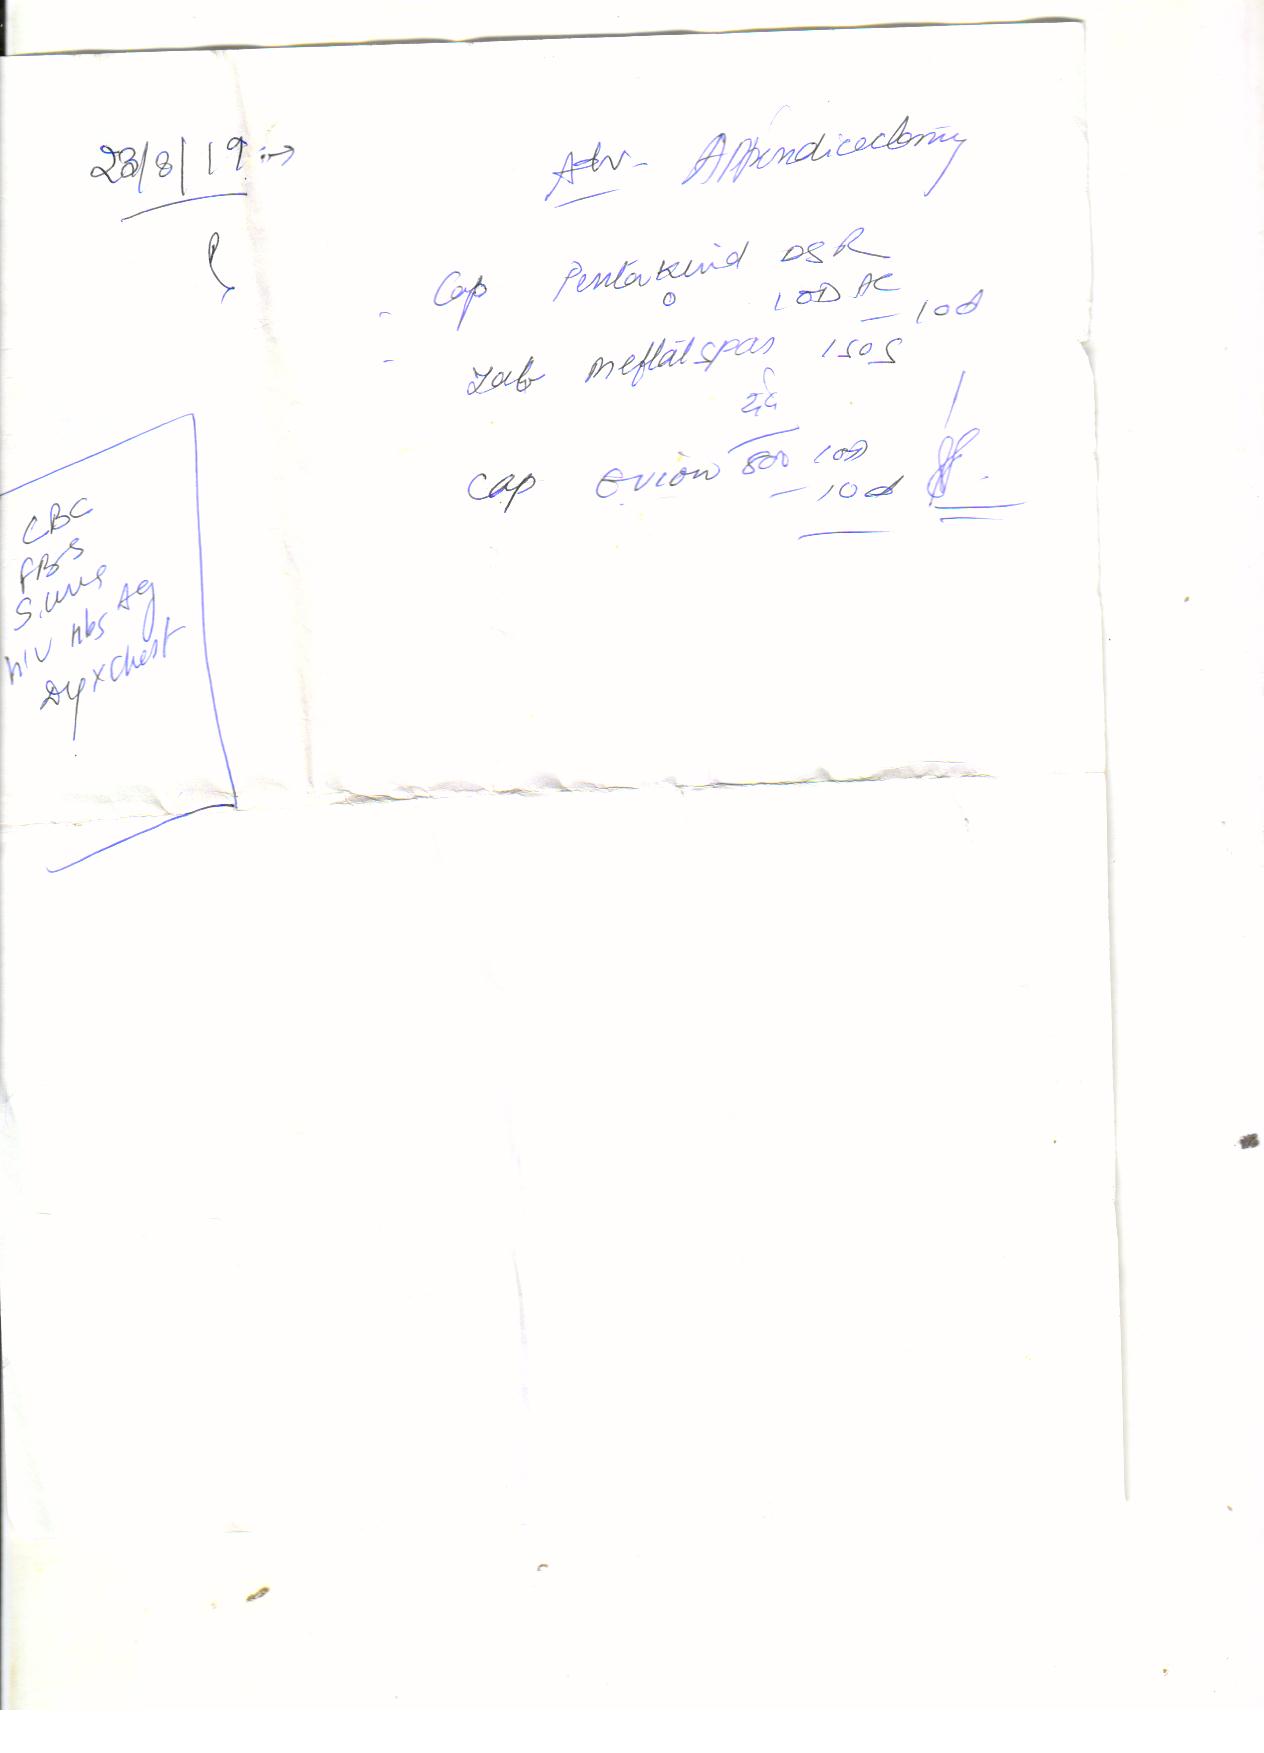 23/8/19 :→
Adv - Appendicectomy
Cap Pentakind DSR
1 OD AC
— 10 d
Tab Meftalspas 1 SOS
Cap Evion 1 OD
— 10 d
CBC
FBS
HIV Hbs Ag
Chest